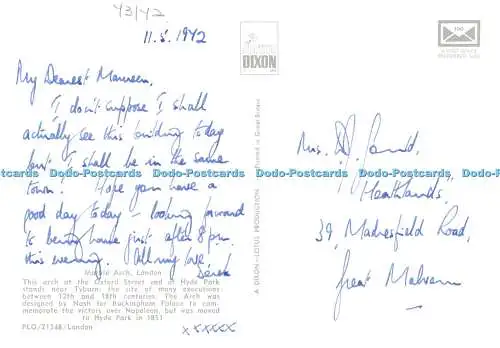 43/42
11.5.1972
My Dearest Maureen,
I don't suppose I shall
actually see this building today
but I shall be in the same
town! Hope you have a
good day today – looking forward
to being home just after 8pm
this evening. All my love,
Derek
xxxxxx
Marble Arch, London
This arch at the Oxford Street end of Hyde Park
stands near Tyburn: the site of many executions
between 12th and 18th centuries. The Arch was
designed by Nash for Buckingham Palace to com-
memorate the victory over Napoleon, but was moved
to Hyde Park in 1851
PLO/21548/London
DIXON
A DIXON—LOTUS PRODUCTION
Printed in Great Britain
Mrs. D.
"Heathlands",
39 Madresfield Road,
Great Malvern
Dodo-Postcards Dodo-Postcards Dodo-Postcards Dodo-Postcards